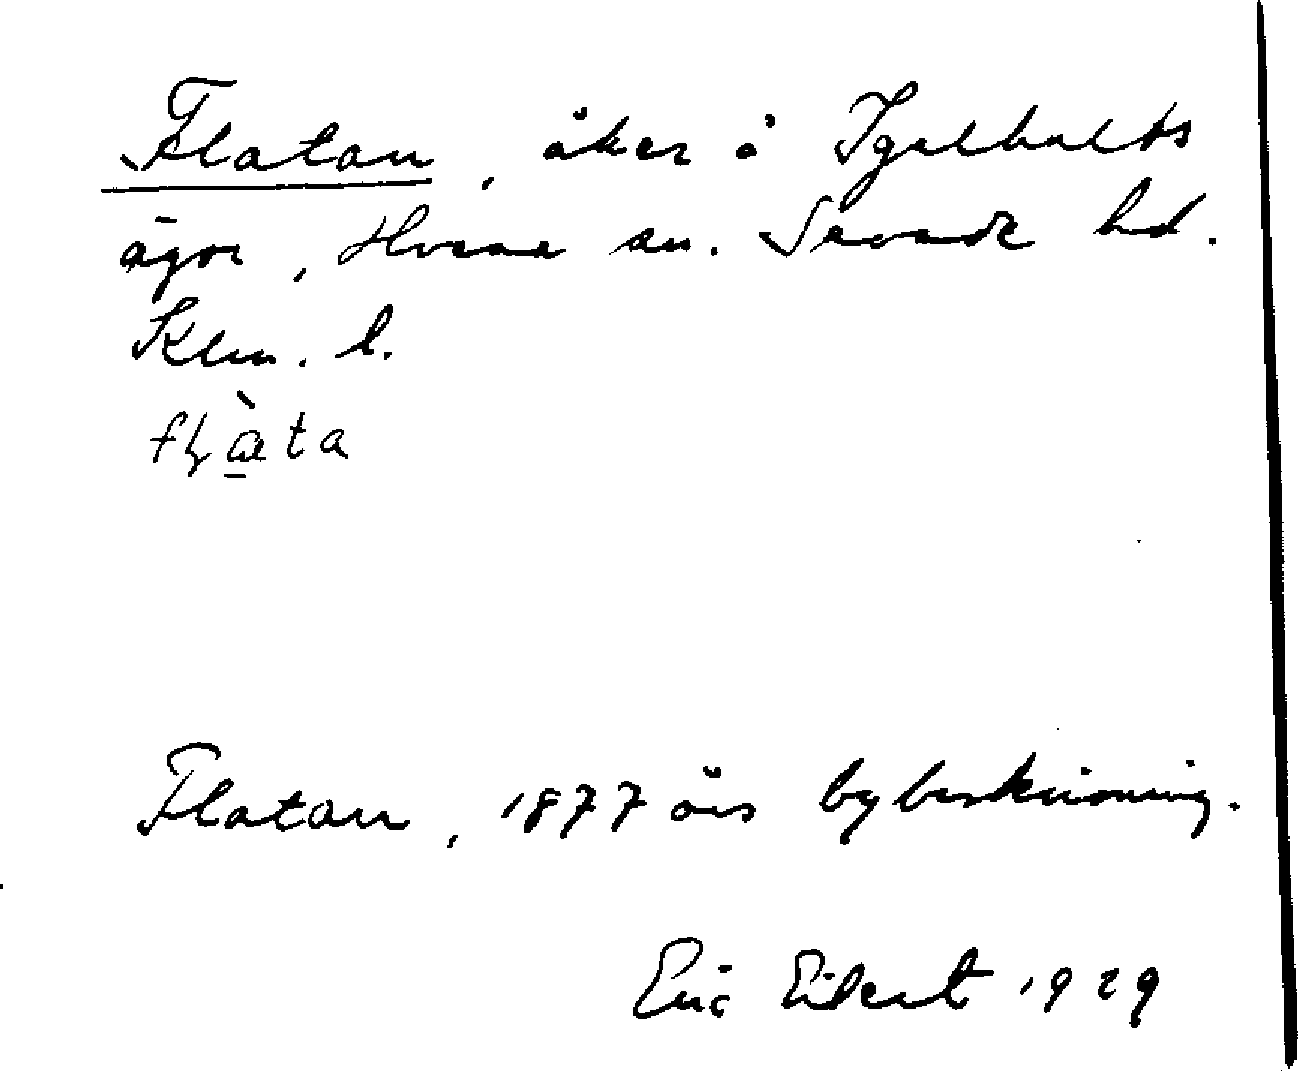 Flatan, åker å Igelhults
ägor, Hvena sn. Sevede hd.
Klm. l.
flɑ̀ta
Flatan, 1877 års bybeskrivning.
Eric Eilert 1929